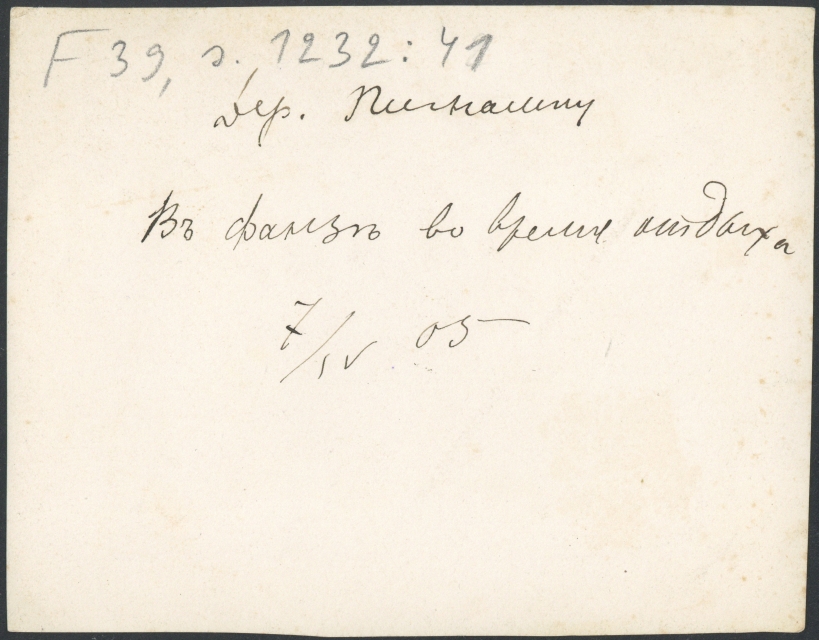 F 39, s. 1232:41
Дер.
Въ фанзѣ во время отдыха
7/IV 05